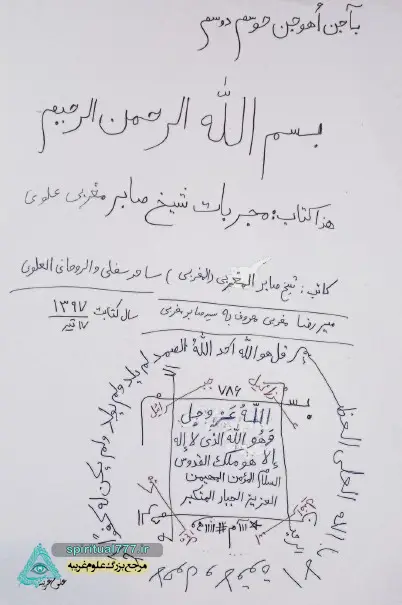 بسم الله الرحمن الرحیم
هذا کتاب: مجربات شیخ صابر مغربی علوی
کاتب: شیخ صابر المغربی (المغربی) ساحر سفلی و الروحانی العلوی
میر رضا مغربی معروف به سید صابر مغربی
سال کتابت ۱۳۹۷
۱۷ تیر
قل هو الله احد الله الصمد لم یلد ولم یولد ولم یکن له کفوا
۷۸۶
الله عز وجل
فهو الله الذی لا اله
الا هو ملک القدوس
السلام المؤمن المهیمن
العزیز الجبار المتکبر
یا الله العلی العظیم
spiritual777.ir
مرجع بزرگ علوم غریبه
علوم غریبه